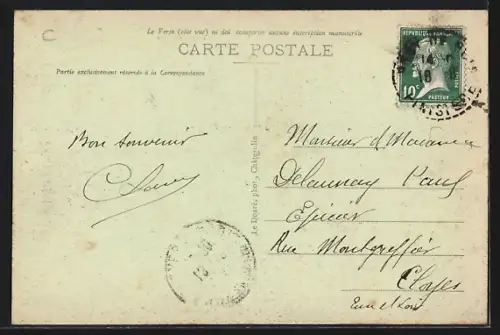 C
Le Verso (côté vue) ne doit comporter aucune inscription manuscrite
CARTE POSTALE
Partie exclusivement réservée à la Correspondance
REPUBLIQUE FRANÇAISE
10c
POSTES
PASTEUR
Bon souvenir
Le Doaré, phot., Châteaulin
Monsieur et Madame
Delaunay Paul
Epicier
Rue Montgreffier
Cloyes
Eure et Loir